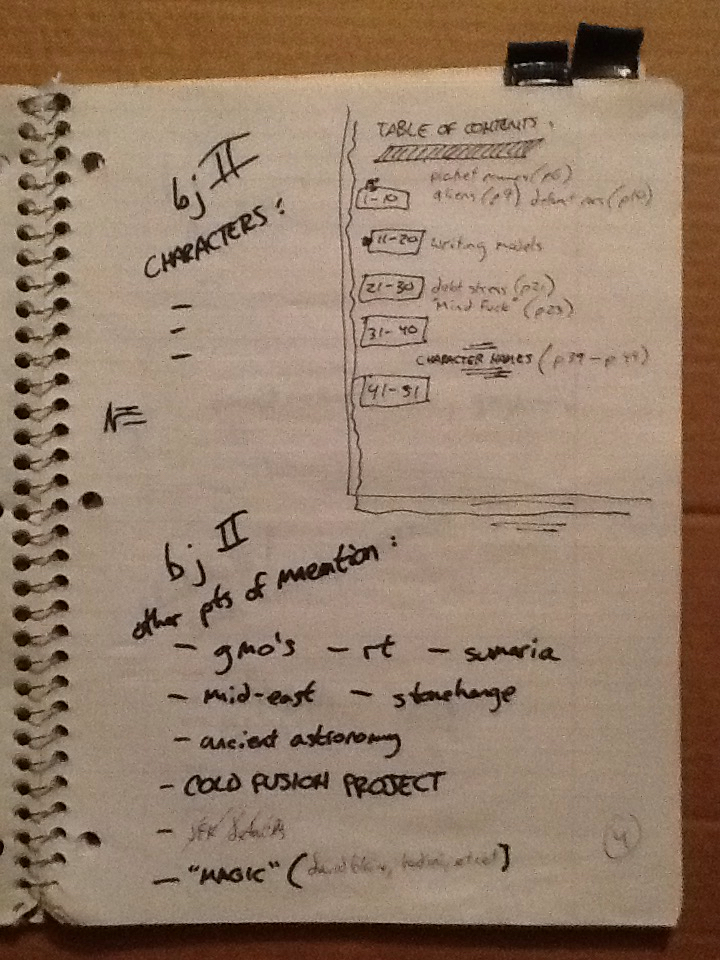 bj II
CHARACTERS:
-
-
-
TABLE OF CONTENTS:
1-10 planet names (p6)
aliens (p9) defunct (p10)
11-20 writing models
21-30 debt stress (p21)
"Mind Fuck" (p23)
31-40
CHARACTER NAMES (p39-p49)
41-51
bj II
other pts of mention:
- gmo's - rt - sumaria
- mid-east - stonehange
- ancient astronomy
- COLD FUSION PROJECT
-
- "MAGIC" (david blaine,
4